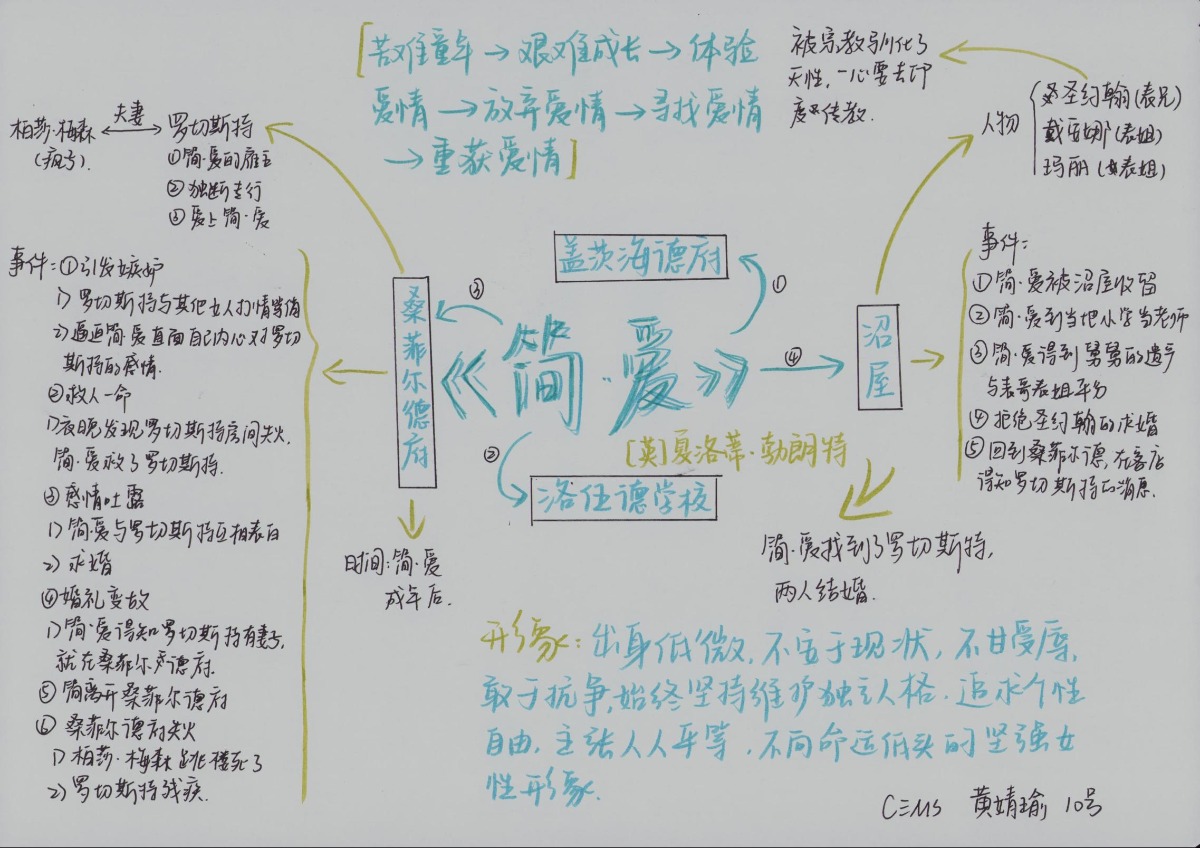 [苦难童年→艰难成长→体验
爱情→放弃爱情→寻找爱情
→重获爱情]
被宗教驯化了
天性,一心要去印
度传教.
人物
圣约翰(表兄)
戴安娜(表姐)
玛丽(表姐)
柏莎·梅森
(疯子).
夫妻
罗切斯特
①简·爱的雇主
②独断专行
③爱上简·爱
事件:①引发嫉妒
1)罗切斯特与其他女人打情骂俏
2)逼迫简·爱直面自己内心对罗切
斯特的感情.
②救人一命
1)夜晚发现罗切斯特房间失火,
简·爱救了罗切斯特.
③感情吐露
1)简·爱与罗切斯特互相表白
2)求婚
④婚礼变故
1)简·爱得知罗切斯特有妻子,
就在桑菲尔德府.
⑤简离开桑菲尔德府
⑥桑菲尔德府失火
1)柏莎·梅森跳楼死了
2)罗切斯特残疾.
盖茨海德府
①
③
桑菲尔德府
《简·爱》
④
沼屋
②
[英]夏洛蒂·勃朗特
洛伍德学校
时间:简·爱
成年后.
事件:
①简·爱被沼屋收留
②简·爱到当地小学当老师
③简·爱得到舅舅的遗产
与表哥表姐平分
④拒绝圣约翰的求婚
⑤回到桑菲尔德,在客店
得知罗切斯特的消息.
简·爱找到了罗切斯特,
两人结婚.
形象:出身低微,不安于现状,不甘受辱,
敢于抗争,始终坚持维护独立人格.追求个性
自由,主张人人平等,不向命运低头的坚强女
性形象.
黄婧瑜 10号